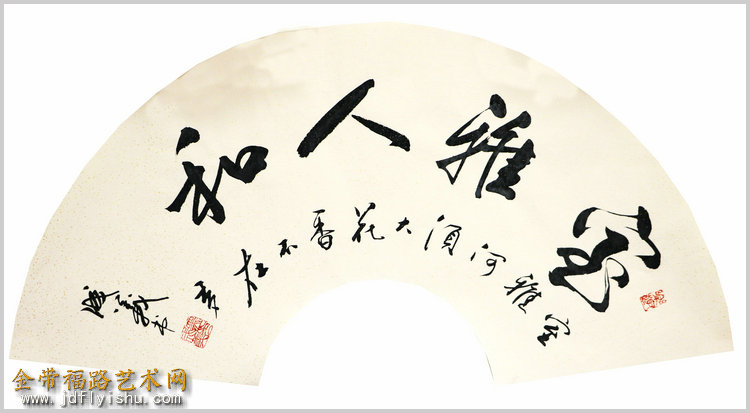 室雅人和
室雅何須大花香不在多
金带福路艺术网
www.jdflyishu.com